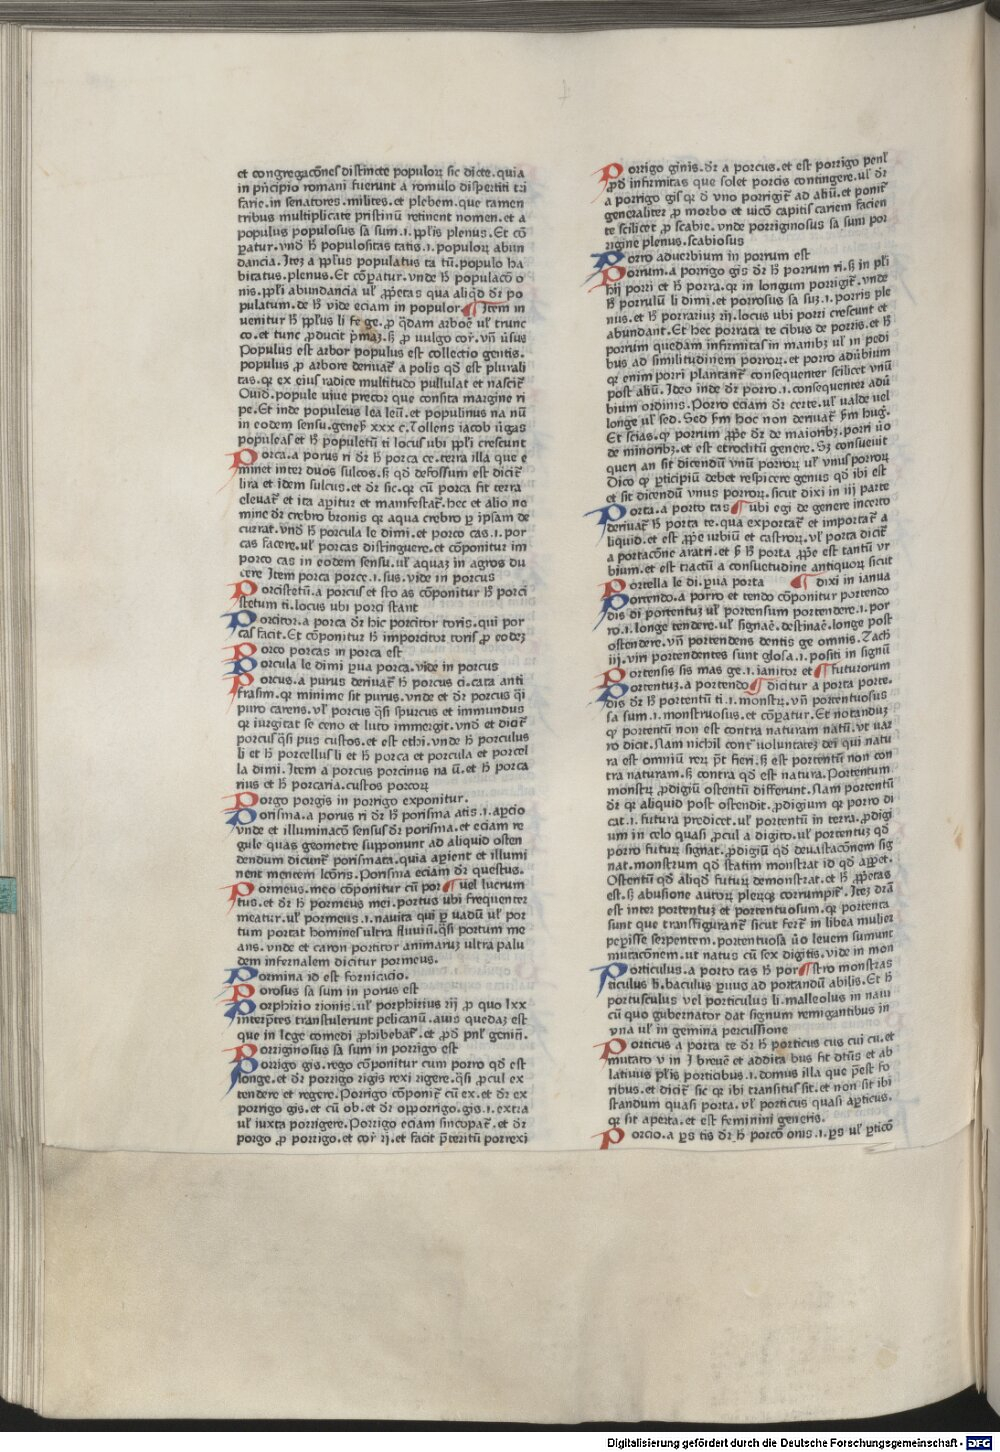 et congregacões distincte populoꝝ sic dicte. quia
in pͥncipio romani fuerunt a romulo dispertiti tri
farie. in senatores. milites. et plebem. que tamen
tribus multiplicate pristinū retinent nomen. et a
populus populosus sa sum .i. pp̄lis plenus. Et cō
ꝑatur. vnđ ħ populositas tatis .i. populoꝝ abun
dancia. Iteꝫ a pp̄lus populatus ta tū. populo ha
bitatus. plenus. Et cōꝑatur. vnde ħ populacō o
nis. pp̄li abundancia uƚ ꝓp̄etas qua aliq̄d dr̄ po
pulatum. de ħ vide eciam in populor ¶ Item in
uenitur ħ pp̄lus li fe ge. ꝓ q̄dam arboē uƚ trunc
co. et tunc ꝓducit pͥmaꝫ. sꝫ ꝓ uulgo cor̄. vn̄ u̇sus
Populus est arbor populus est collectio gentis.
populus ꝓ arbore deriuat᷑ a polis qđ est plurali
tas. qꝛ ex eius radice multitudo pullulat et nascit᷑
Ouid. popule uiue precor que consita margine ri
pe. Et inde populeus lea leū. et populinus na nū
in eodem sensu. geneſ xxx c. Tollens iacob u̇gas
populeas et ħ populetū ti locus ubi pp̄li crescunt
Porca. a porus ri dr̄ ħ porca ce. terra illa que e
minet inter duos sulcos. sꝫ qđ defossum est dicit᷑
lira et idem sulcus. et dr̄ sic. qꝛ cū porca fit terra
eleuat᷑ et ita aꝑitur et manifestat᷑. hec et alio no
mine dr̄ crebro bronis qꝛ aqua crebro ꝑ ipsam de
currat. vnđ ħ porcula le dimi. et porco cas .i. por
cas facere. uƚ porcas distinguere. et cōponitur im
porco cas in eodem sensu. uƚ aquaꝫ in agros du
cere Item porca porce .i. sus. vide in porcus
Porcistetū. a porcus et sto as cōponitur ħ porci
stetum ti. locus ubi porci stant
Porcitor. a porca dr̄ hic porcitor toris. qui por
cas facit. Et cōponitur ħ imporcitor toris ꝓ eodeꝫ
Porco porcas in porca est
Porcula le dimi ꝑua porca. vide in porcus
Porcus. a purus deriuat᷑ ħ porcus ci. cata anti
frasim. qꝛ minime sit purus. vnde et dr̄ porcus q̄i
puro carens. vƚ porcus q̄si spurcus et immundus
qꝛ iurgitat se ceno et luto immergit. vnđ et dicit᷑
porcus q̄si pus custos. et est ethi. vnde ħ porculus
li et ħ porcellus li et ħ porca et porcula et porcel
la dimi. Item a porcus porcinus na ū. et ħ porca
rius et ħ porcaria. custos porcoꝝ
Porgo porgis in porrigo exponitur.
Porisma. a porus ri dr̄ ħ porisma atis .i. aꝑcio
vnde et illuminacō sensus dr̄ porisma. et eciam re
gule quas geometre supponunt ad aliquid osten
dendum dicunt᷑ porismata. quia aꝑient et illumi
nent mentem lc̄oris. Porisma eciam dr̄ questus.
Pormeus. meo cōponitur cū por ¶ uel lucrum
tus. et dr̄ ħ pormeus mei. portus ubi frequenter
meatur. uƚ pormeus .i. nauita qui ꝑ uadū uƚ por
tum portat homines ultra fluuiū. q̄si portum me
ans. vnde et caron portitor animaruꝫ ultra palu
dem infernalem dicitur pormeus.
Pormina id est fornicacio.
Porosus sa sum in porus est
Porphirio rionis. uƚ porphirius rij ꝓ quo lxx
interp̄tes transtulerunt pelicanū. auis quedaꝫ est
que in lege comedi ꝓhibebat᷑. et ꝓđ pnƚ genin̄.
Porriginosus sa sum in porrigo est
Porrigo gis. rego cōponitur cum porro qđ est
longe. et dr̄ porrigo rigis rexi rigere. q̄si ꝓcul ex
tendere et regere. Porrigo cōponit᷑ cū ex. et dr̄ ex
porrigo gis. et cū ob. et dr̄ opporrigo. gis .i. extra
uƚ iuxta porrigere. Porrigo eciam sincopat᷑. et dr̄
porgo ꝓ porrigo. et cor̄ ri. et facit p̄teritū porrexi
Porrigo ginis. dr̄ a porcus. et est porrigo penƚ
ꝓđ infirmitas que solet porcis contingere. uƚ dr̄
a porrigo gis qꝛ đ vno porrigit᷑ ad aliū. et ponit᷑
generaliter ꝓ morbo et uicō capitis cariem facien
te scilicet ꝓ scabie. vnde porriginosus sa sum por
rigine plenus. scabiosus
Porro aduerbium in porrum est
Porrum. a porrigo gis dr̄ ħ porrum ri. sꝫ in pƚi
hij porri et ħ porra. qꝛ in longum porrigit᷑. vnde
ħ porrulū li dimi. et porrosus sa suꝫ .i. porris ple
nus. et ħ porrarius rij. locus ubi porri crescunt et
abundant. Et hec porrata te cibus de porris. et ħ
porrum quedam infirmitas in manibꝫ uƚ in pedi
bus ad similitudinem porroꝝ. et porro adūbium
qꝛ enim porri plantant᷑ consequenter scilicet vnū
post aliū. Ideo inde dr̄ porro .i. consequenter adū
bium ordinis. Porro eciam dr̄ certe. uƚ ualde uel
longe uƚ sed. Sed s̄m hoc non deriuat᷑ s̄m hug.
Et scias. ꝙ porrum ꝓp̄e dr̄ de maioribꝫ. porri uo
de minoribꝫ. et est etroclitū genere. Sꝫ consueuit
queri an sit dicendū vnū porroꝝ uƚ vnus porroꝝ
Dico ꝙ ꝑticipiū debet respicere genus qđ ibi est
et sit dicendū vnus porroꝝ. sicut dixi in iij parte
Porta. a porto tas ¶ ubi egi de genere incerto
deriuat᷑ ħ porta te. qua exportat᷑ et importat᷑ a
liquid. et est ꝓp̄e urbiū et castroꝝ. vƚ porta dicit᷑
a portacōne aratri. et s̄ ħ porta ꝓp̄e est tantū vr
bium. et est tractū a consuetudine antiquoꝝ sicut
Portella le di. ꝑua porta ¶ dixi in ianua
Portendo. a porro et tendo cōponitur portendo
dis di portentuꝫ uƚ portensum portendere .i. por
ro .i. longe tendere. uƚ signaē. destinaē. longe post
ostendere. vn̄ portendens dentis ge omnis. Zach
iij. viri portendentes sunt glosa .i. positi in signū
Portensis sis mas ge .i. ianitor et ¶ futurorum
Portentuꝫ. a portendo ¶ dicitur a porta porte.
dis dr̄ ħ portentū ti .i. monstꝝ. vn̄ portentuosus
sa sum .i. monstruosus. et cōꝑatur. Et notanduꝫ
ꝙ portentū non est contra naturam natū. ut uar
ro dicit. Nam nichil cont᷑ uoluntateꝫ dei qui natu
ra est omniū reꝝ p̄t fieri. sꝫ est portentū non con
tra naturam. sꝫ contra qđ est natura. Portentum
monstꝝ ꝓdigiū ostentū differunt. Nam portentū
dr̄ qꝛ aliquid post ostendit. ꝓdigium qꝛ porro di
cat .i. futura predicet. uƚ portentū in terra. ꝓdigi
um in celo quasi ꝓcul a digito. uƚ portentuꝫ qđ
porro futuꝝ signat. ꝓdigiū qđ deuastacōnem sig
nat. monstrum qđ statim monstrat id qđ apꝑet.
Ostentū qđ aliqđ futuꝝ demonstrat. et ħ ꝓp̄etas
est. sꝫ abusione autoꝝ pleꝝqꝫ corrumpit᷑. Iteꝫ dr̄a
est inter portentuꝫ et portentuosum. qꝛ portenta
sunt que transfigurant᷑ sicut fert᷑ in libea mulier
peꝑisse serpentem. portentuosa u̇o leuem sumunt
mutacōnem. ut natus cū sex digitis. vide in mon
Porticulus. a porto tas ħ por ¶ stro monstras
ticulus ħ. baculus ꝑuus ad portandū abilis. Et ħ
portusculus vel porticulus li. malleolus in naui
cū quo gubernator dat signum remigantibus in
vna uƚ in gemina percussione
Porticus a porta te dr̄ ħ porticus cus cui cu. et
mutato v in i breuē et addita bus fit dtūs et ab
latiuus pƚis porticibus .i. domus illa que p̄est fo
ribus. et dicit᷑ sic qꝛ ibi transitus sit. et non sit ibi
standum quasi porta. vƚ porticus quasi aꝑticus.
qꝛ sit aperta. et est feminini generis.
Porcio. a ꝑs tis dr̄ ħ porcō onis .i. ꝑs uƚ ꝑticō
Digitalisierung gefördert durch die Deutsche Forschungsgemeinschaft - DFG